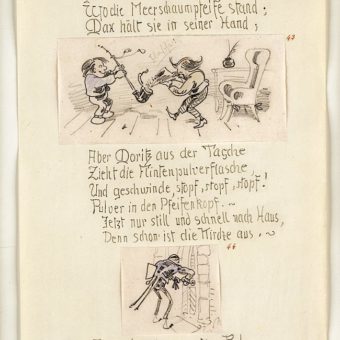 Wo die Meerschaumpfeife stand;
Max hält sie in seiner Hand;
43
Aber Moritz aus der Tasche
Zieht die Flintenpulverflasche,
Und geschwinde, stopf, stopf, stopf!
Pulver in den Pfeifenkopf. ~
Jetzt nur still und schnell nach Haus,
Denn schon ist die Kirche aus. ~
44